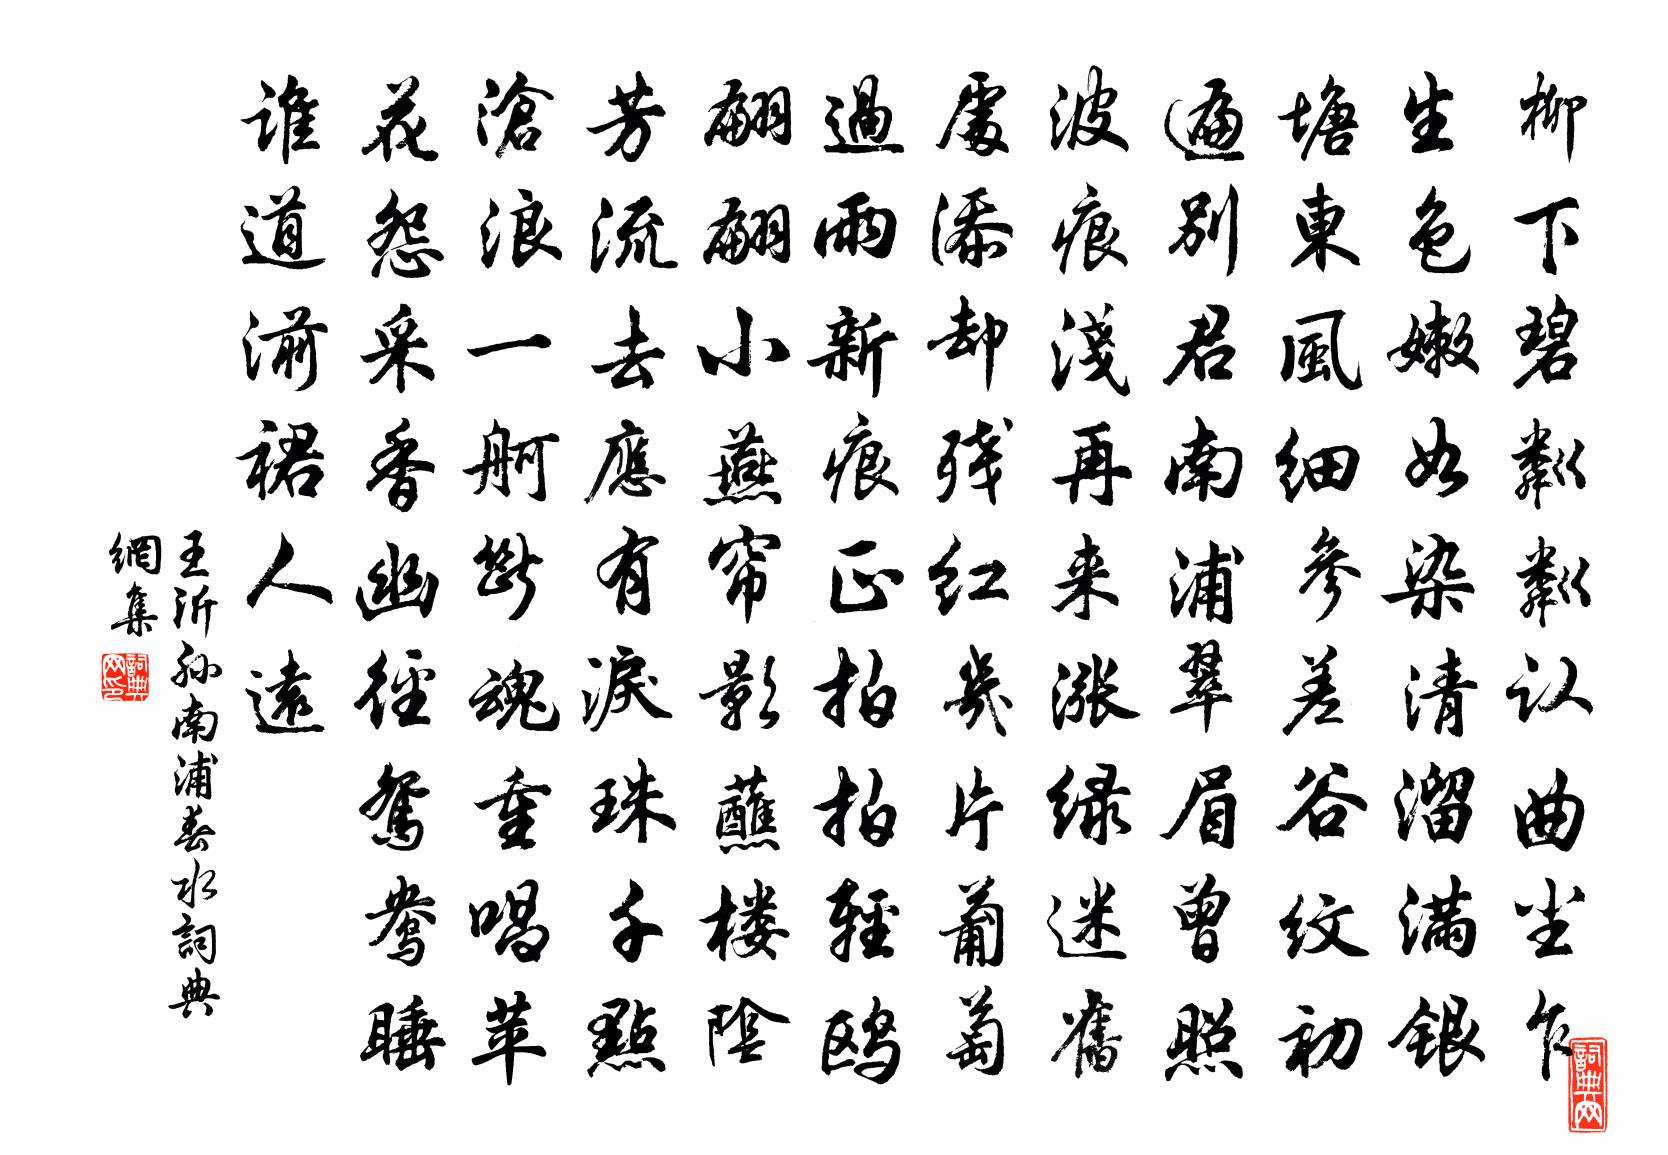 柳下碧粼粼认曲尘乍
生色嫩如染清溜满银
塘東風细參差谷纹初
遍别君南浦翠眉曾照
波痕淺再来涨绿迷舊
處添却残红幾片葡萄
過雨新痕正拍拍輕鸥
翩翩小燕帘影蘸楼陰
芳流去應有淚珠千點
滄浪一舸斷魂重唱苹
花怨采香幽徑鴛鴦睡
谁道湔裙人遠
王沂孙南浦春水詞典
網集
詞典网印
詞典网